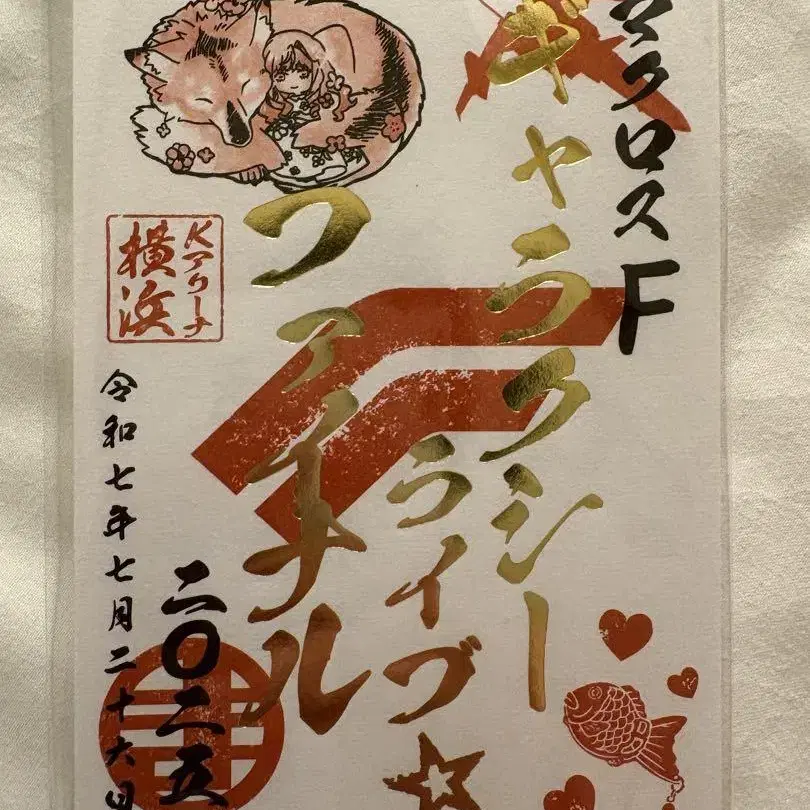 マクロスF
ギャラクシー
ライブ☆
ファイナル
二〇二五
Kアリーナ
横浜
令和七年七月二十六日